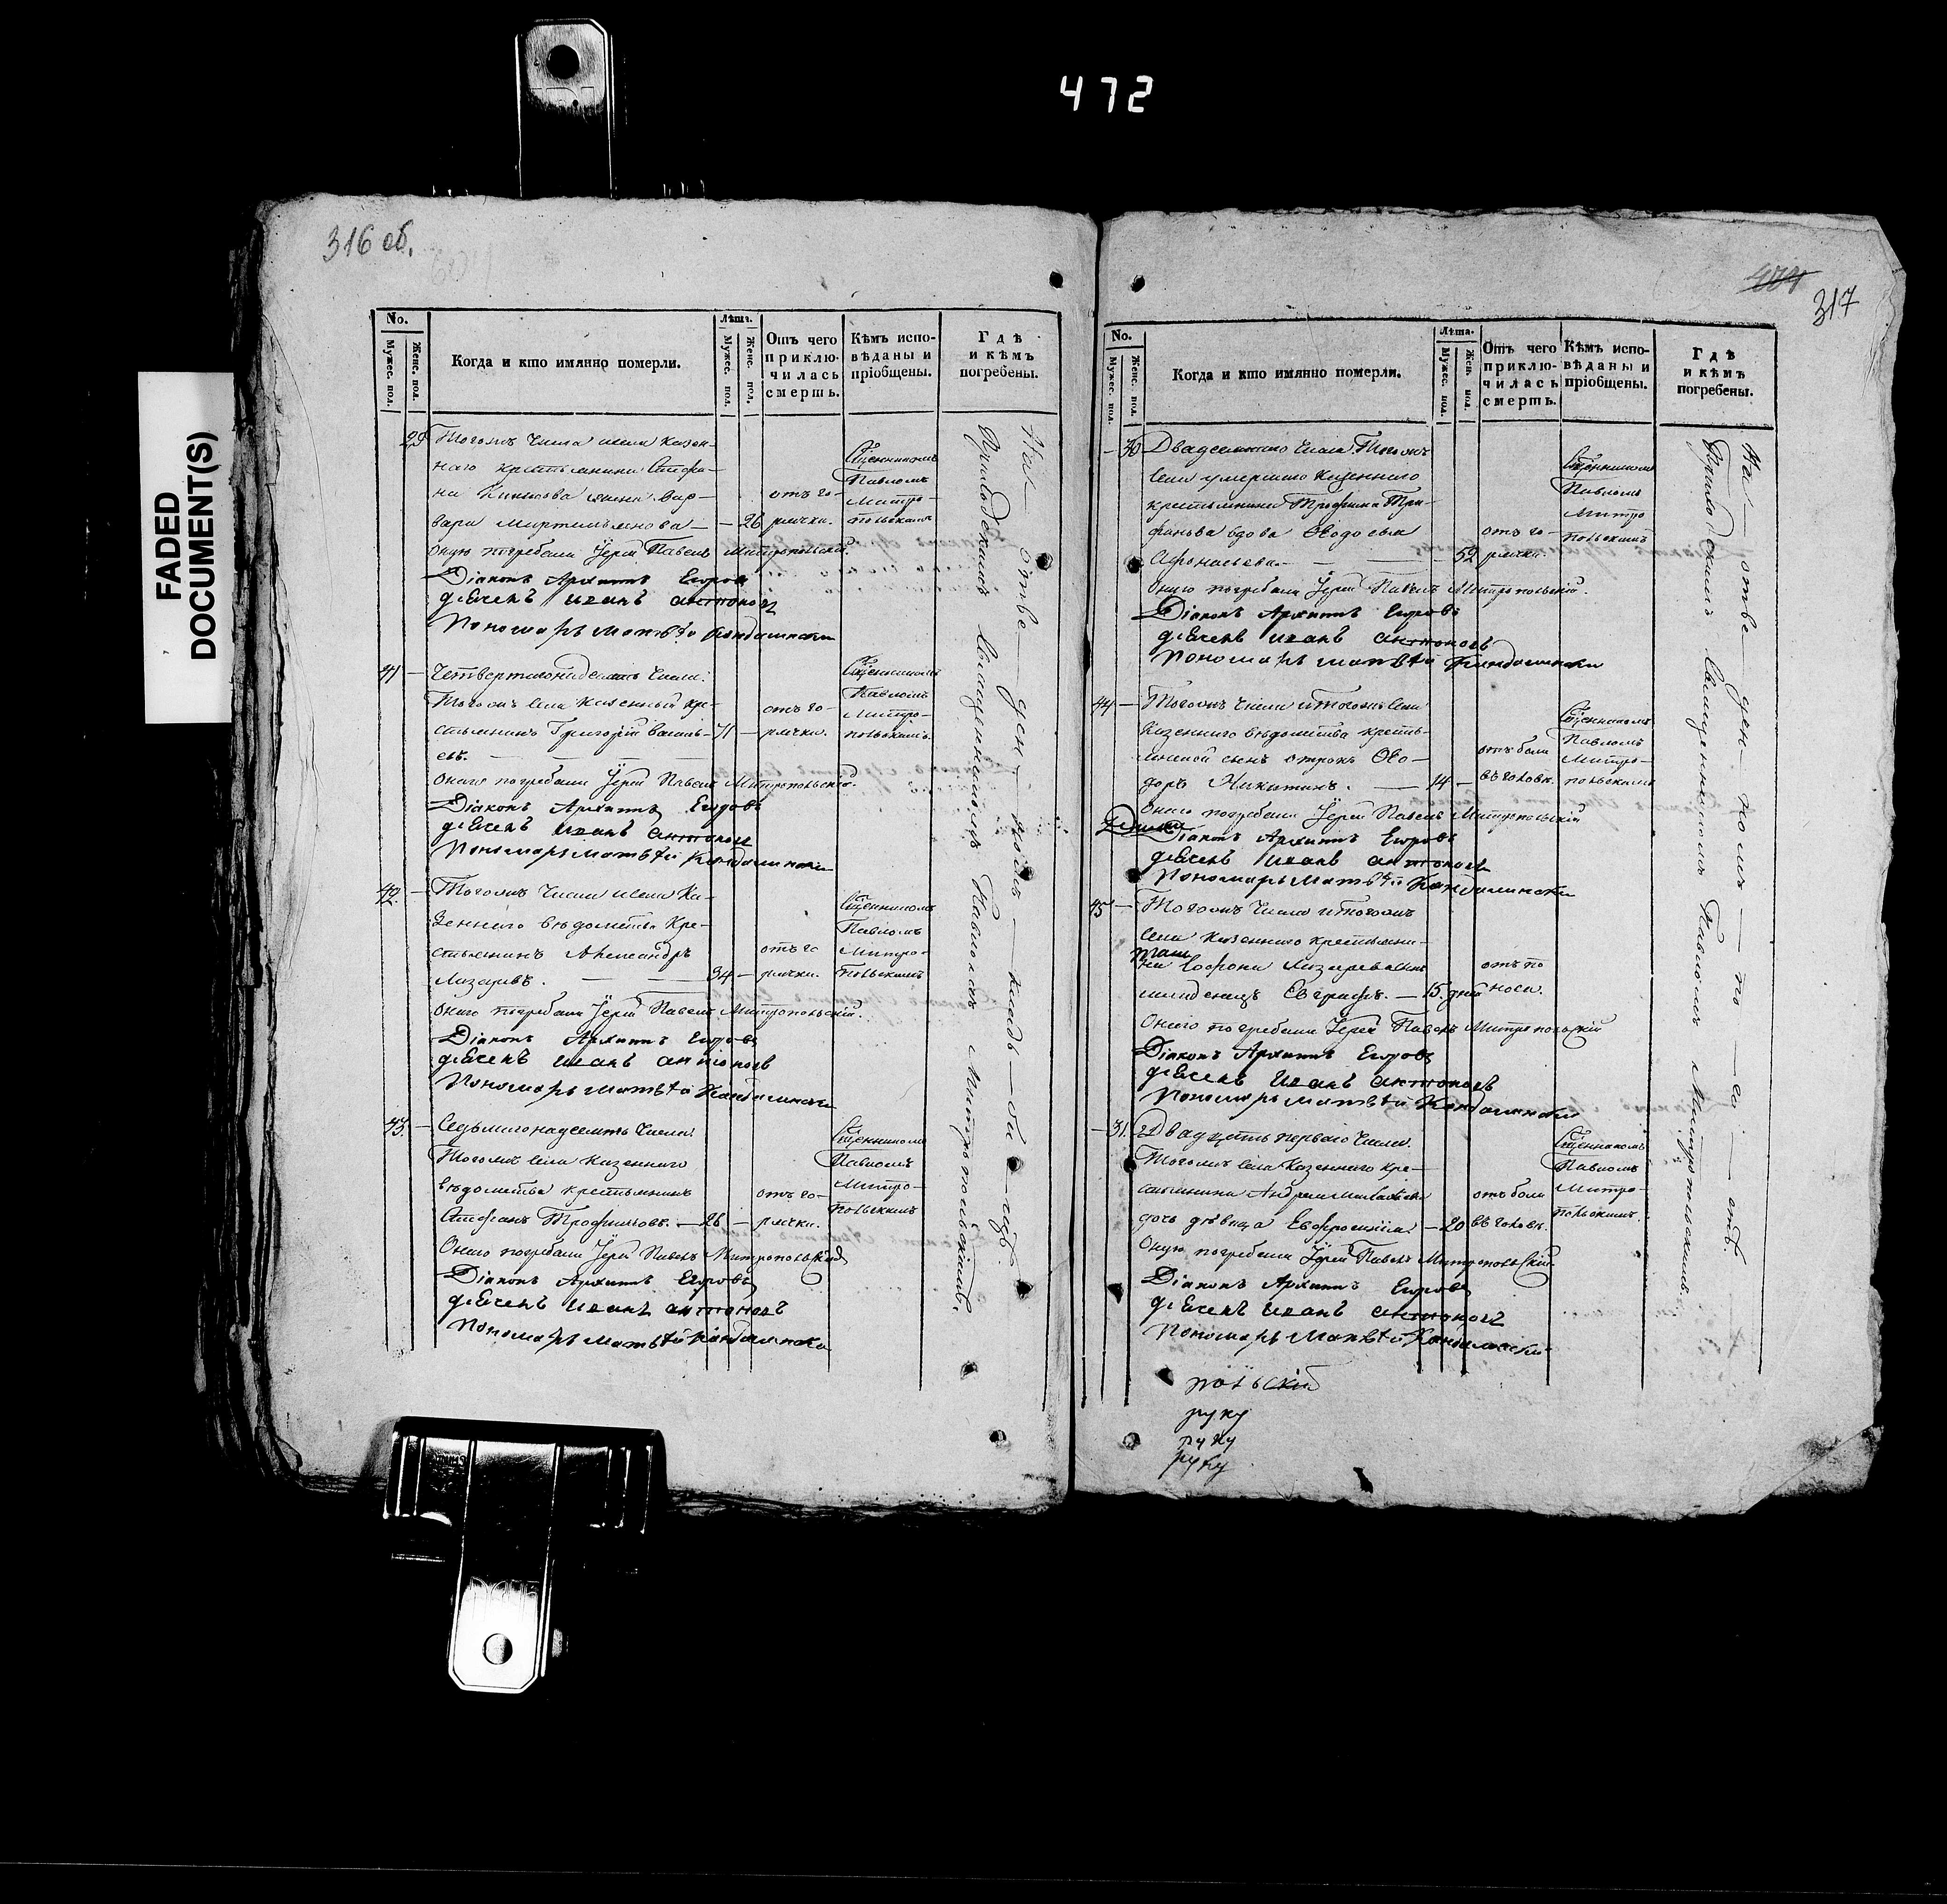 472
FADED
DOCUMENT(S)
316 об.
No.
Мужес. пол.
Женс. пол.
Когда и кто имянно померли.
Лѣта.
Мужес. пол.
Женс. пол.
Отъ чего
приклю-
чилась
смерть.
Кѣмъ испо-
вѣданы и
пріобщены.
Гдѣ
и кѣмъ
погребены.
29 Тогожъ числа и села казен-
наго крестьянина Стефа-
на жена Вар-
вара Мартемьянова — — 26
отъ го-
рячки.
Сщенникомъ
Павломъ
Митро-
польскимъ
оную погребали Іерей Павелъ Митропольскій.
Діаконъ Архиппъ Егоровъ
дьячекъ иванъ антоновъ
Пономарь матвѣй
41 — Четвертагонадесять числа.
Тогожъ села казенный кре-
стьянинъ Григорій Василь- 71 —
евъ.
отъ го-
рячки.
Сщенникомъ
Павломъ
Митро-
польскимъ.
Онаго погребали Іерей Павелъ Митропольскій.
Діаконъ Архиппъ Егоровъ
дьячекъ иванъ антоновъ
Пономарь матвѣй
42. — Тогожъ числа и села ка-
зеннаго вѣдомства кре-
стьянинъ Александръ
Лазаревъ. — — 34 —
отъ го
рячки.
Сщенникомъ
Павломъ
Митро-
польскимъ
онаго погребали Іерей Павелъ Митропольскій.
Діаконъ Архиппъ Егоровъ
дьячекъ иванъ антоновъ
Пономарь матвѣй
43. — Седьмагонадесять числа.
Тогожъ села казеннаго
вѣдомства крестьянинъ
Стефанъ Трофимовъ. — 26 —
отъ го-
рячки.
Сщенникомъ
Павломъ
Митро-
польскимъ
Онаго погребали Іерей Павелъ Митропольскій
Діаконъ Архиппъ Егоровъ
дьячекъ иванъ антоновъ
Пономарь матвѣй
На — отве — ден — номъ — кладъ — би — щѣ.
Приходскимъ Священникомъ Павломъ Митропольскимъ.
317
No.
Мужес. пол.
Женс. пол.
Когда и кто имянно померли.
Лѣта.
Мужес. пол.
Женс. пол.
Отъ чего
приклю-
чилась
смерть.
Кѣмъ испо-
вѣданы и
пріобщены.
Гдѣ
и кѣмъ
погребены.
— 30 Двадесятаго числа Тогожъ
села умершаго казеннаго
крестьянина Трофима Три-
фанова вдова Ѳеодосья
Афонасьева. — — — 52
отъ го-
рячки.
Сщенникомъ
Павломъ
Митро
польскимъ
Оную погребали Іерей Павелъ Митропольскій.
Діаконъ Архиппъ Егоровъ
дьячекъ иванъ антоновъ
Пономарь матвѣй
44 — Тогожъ числа и Тогожъ села
казеннаго вѣдомства кресть-
янской сынъ отрокъ Ѳео-
доръ Никитинъ. — 14 —
отъ боли
въ головѣ.
Сщенникомъ
Павломъ
Митро-
польскимъ
Онаго погребали Іерей Павелъ Митропольскій
Діаконъ Архиппъ Егоровъ
дьячекъ иванъ антоновъ
Пономарь матвѣй
45 — Тогожъ числа и тогожъ
села казеннаго крестьяни-
на Софрона Лазарева сынъ
младенецъ Евграфъ. — 15. дней
отъ по
носа.
Онаго погребали Іерей Павелъ Митропольскій
Діаконъ Архиппъ Егоровъ
дьячекъ иванъ антоновъ
Пономарь матвѣй
— 31. Двадцать перваго числа.
Тогожъ села казеннаго кре-
стьянина Андрея
дочь дѣвица Евфросинія — 20
отъ боли
въ головѣ.
Сщенникомъ
Павломъ
Митро-
польскимъ.
Оную погребали Іерей Павелъ Митропольскій.
Діаконъ Архиппъ Егоровъ
дьячекъ иванъ антоновъ
Пономарь матвѣй
На — отве — ден — номъ —
Приходскимъ Священникомъ Павломъ Митропольскимъ.
польскій
руку
руку
руку